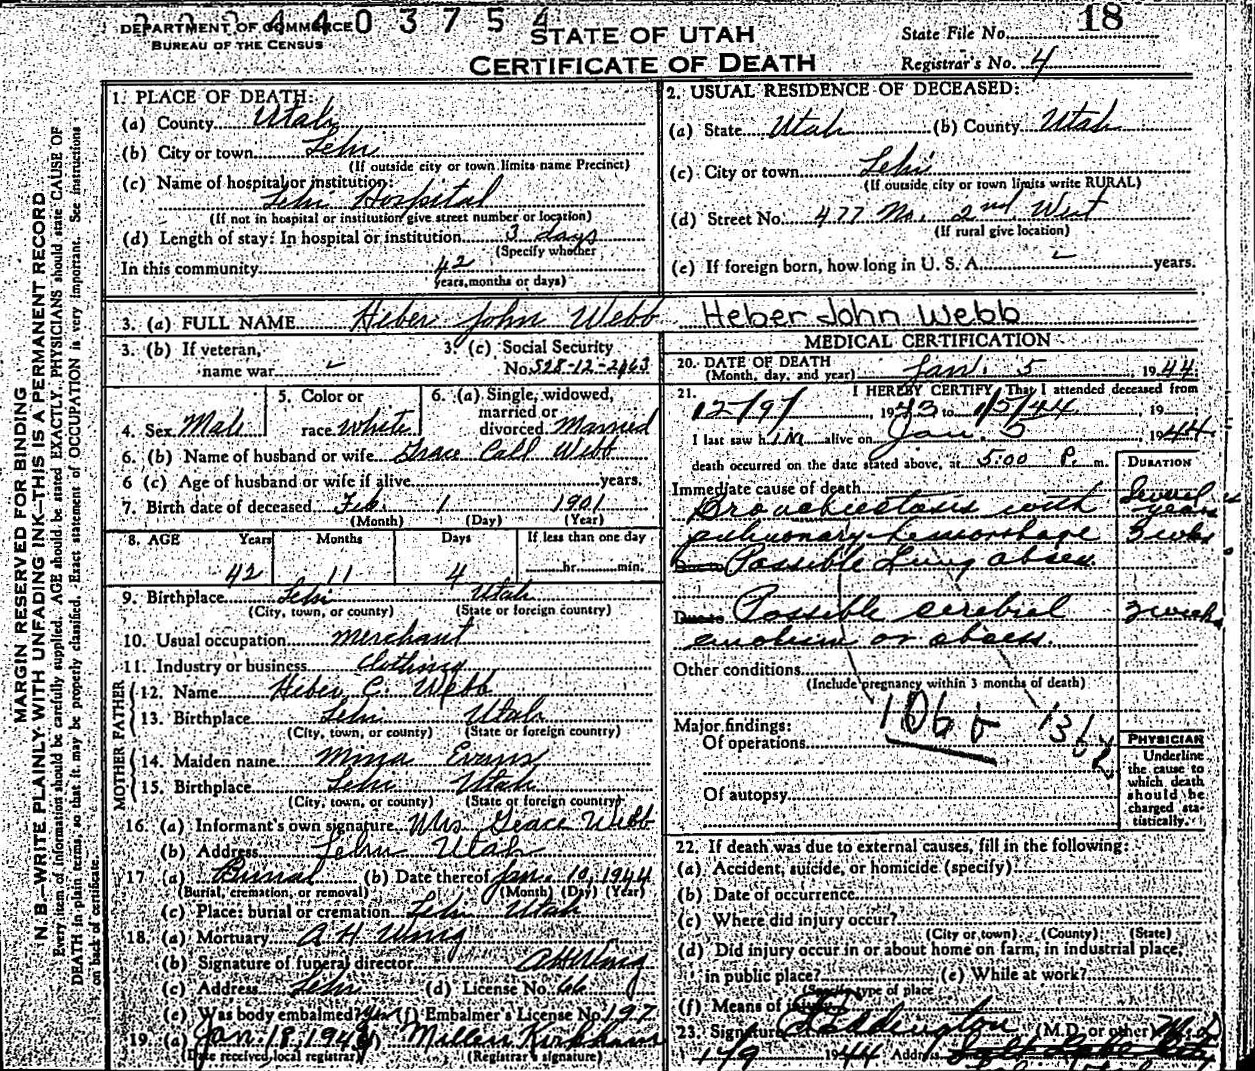 2 4403754
DEPARTMENT OF COMMERCE
BUREAU OF THE CENSUS
STATE OF UTAH
CERTIFICATE OF DEATH
State File No. 18
Registrar's No. 4
MARGIN RESERVED FOR BINDING
N. B.—WRITE PLAINLY WITH UNFADING INK—THIS IS A PERMANENT RECORD
Every item of information should be carefully supplied. AGE should be stated EXACTLY. PHYSICIANS should state CAUSE OF
DEATH in plain terms, so that it may be properly classified. Exact statement of OCCUPATION is very important. See instructions
on back of certificate.
1. PLACE OF DEATH:
(a) County Utah
(b) City or town Lehi
(If outside city or town limits name Precinct)
(c) Name of hospital or institution:
Lehi Hospital
(If not in hospital or institution give street number or location)
(d) Length of stay: In hospital or institution 3 days
(Specify whether
In this community 42
years, months or days)
2. USUAL RESIDENCE OF DECEASED:
(a) State Utah (b) County Utah
(c) City or town Lehi
(If outside city or town limits write RURAL)
(d) Street No. 477 No. 2nd West
(If rural give location)
(e) If foreign born, how long in U. S. A. years.
3. (a) FULL NAME Heber John Webb Heber John Webb
3. (b) If veteran, name war
3. (c) Social Security No. 528-12-2463
4. Sex Male
5. Color or race white
6. (a) Single, widowed, married or divorced Married
6. (b) Name of husband or wife Grace Call Webb
6 (c) Age of husband or wife if alive years.
7. Birth date of deceased Feb. 1 1901
(Month) (Day) (Year)
8. AGE Years Months Days If less than one day
42 11 4 hr. min.
9. Birthplace Lehi Utah
(City, town, or county) (State or foreign country)
10. Usual occupation merchant
11. Industry or business Clothing
FATHER
12. Name Heber C. Webb
13. Birthplace Lehi Utah
(City, town, or county) (State or foreign country)
MOTHER
14. Maiden name Mina Evans
15. Birthplace Lehi Utah
(City, town, or county) (State or foreign country)
16. (a) Informant's own signature Mrs Grace Webb
(b) Address Lehi Utah
17. (a) Burial (b) Date thereof Jan. 10, 1944
(Burial, cremation, or removal) (Month) (Day) (Year)
(c) Place: burial or cremation Lehi Utah
18. (a) Mortuary A H Wing
(b) Signature of funeral director A H Wing
(c) Address Lehi (d) License No. 66
(e) Was body embalmed? yes (f) Embalmer's License No. 197
19. (a) Jan. 18, 1944 Millen Kirkham
(Date received local registrar) (Registrar's signature)
MEDICAL CERTIFICATION
20. DATE OF DEATH Jan. 5, 1944
(Month, day, and year)
21. I HEREBY CERTIFY, That I attended deceased from
12/9/ 1943 to 1/5/44, 19
I last saw him alive on Jan. 5 1944
death occurred on the date stated above, at 5:00 P. m.
DURATION
Immediate cause of death
Bronchiectosis with Several years
pulmonary hemorrhage 3 wks
Due to Possible Lung absess.
Due to Possible cerebral 2 weeks
emolism or absess.
Other conditions
(Include pregnancy within 3 months of death)
Major findings:
106 b 136
Of operations
Of autopsy
PHYSICIAN
Underline
the cause to
which death
should be
charged sta-
tistically.
22. If death was due to external causes, fill in the following:
(a) Accident, suicide, or homicide (specify)
(b) Date of occurrence
(c) Where did injury occur?
(City or town) (County) (State)
(d) Did injury occur in or about home on farm, in industrial place,
in public place? (e) While at work?
(Specify type of place
(f) Means of injury
23. Signature Eddington (M.D. or other) M.D
1/9 1944 Address Salt Lake City